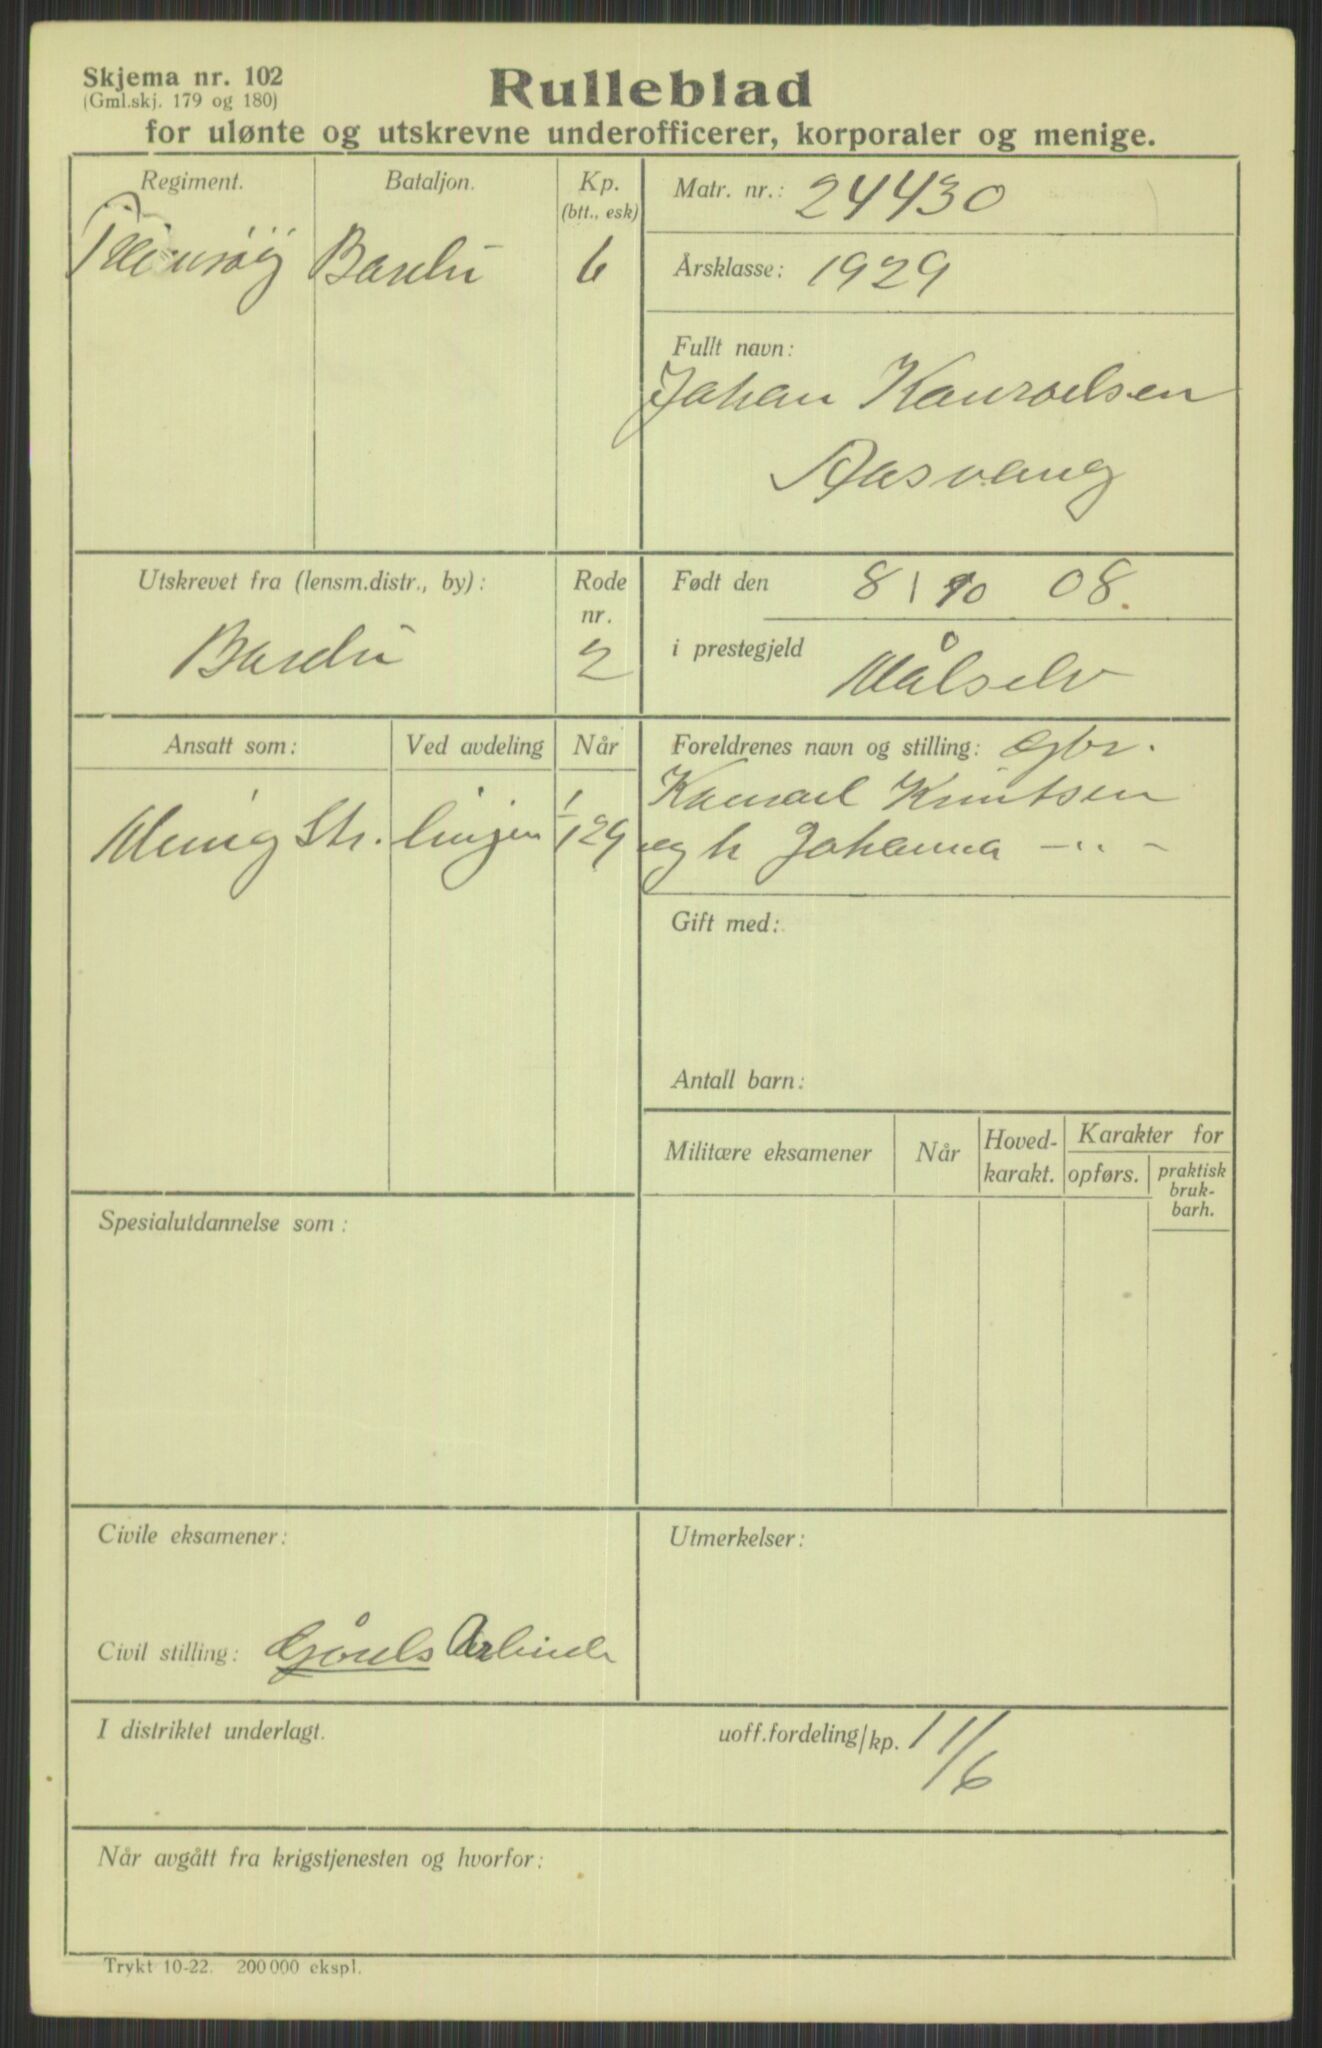 Skjema nr. 102
(Gml.skj. 179 og 180)
Rulleblad
for ulønte og utskrevne underofficerer, korporaler og menige.
Regiment.
Bataljon.
Kp.
(btt., esk)
Bardu
6
Matr. nr.: 24430
Årsklasse: 1929
Fullt navn:
Johan Konradsen
Aasvang
Utskrevet fra (lensm.distr., by):
Rode
nr.
Bardu
2
Født den 8/10 08.
i prestegjeld Målselv
Ansatt som:
Ved avdeling
Når
Menig Str.
linjen
1/1 29
Foreldrenes navn og stilling: Gbr.
Konrad Knutsen
og h Johanna —〃—
Gift med:
Antall barn:
Militære eksamener
Når
Hoved-
karakt.
Karakter for
opførs.
praktisk
bruk-
barh.
Spesialutdannelse som:
Civile eksamener:
Civil stilling: Gårds Arbeide
Utmerkelser:
I distriktet underlagt.
uoff.fordeling/kp. 11/6
Når avgått fra krigstjenesten og hvorfor:
Trykt 10-22. 200 000 ekspl.